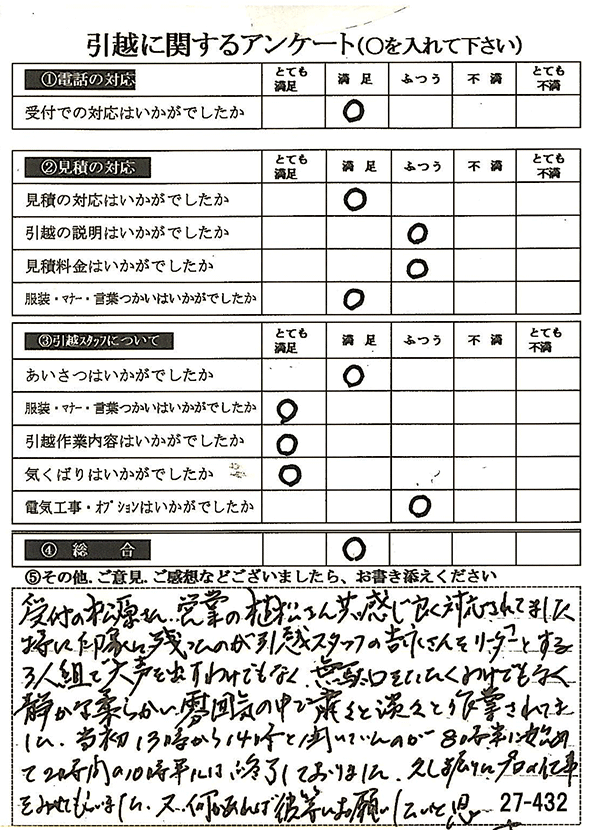 引越に関するアンケート(○を入れて下さい)
①電話の対応 とても満足 満足 ふつう 不満 とても不満
受付での対応はいかがでしたか ○
②見積の対応 とても満足 満足 ふつう 不満 とても不満
見積の対応はいかがでしたか ○
引越の説明はいかがでしたか ○
見積料金はいかがでしたか ○
服装・マナー・言葉つかいはいかがでしたか ○
③引越スタッフについて とても満足 満足 ふつう 不満 とても不満
あいさつはいかがでしたか ○
服装・マナー・言葉つかいはいかがでしたか ○
引越作業内容はいかがでしたか ○
気くばりはいかがでしたか ○
電気工事・オプションはいかがでしたか ○
④総合 ○
⑤その他.ご意見.ご感想などございましたら、お書き添えください
受付の松源さん、営業の植松さん共感じ良く対応されてました
特に印象に残ったのが引越スタッフの さんをリーダーとする
3人組で大声を出すわけでもなく、無駄口をたたくわけでもなく
静かな柔らかい雰囲気の中で粛々と淡々と作業されてま
した、当初13時から14時と聞いていたのが8時半に始め
て2時間の10時半には終了しておりました、久し振りにプロの仕事
をみせてもらいました、又、何かあれば彼等にお願いしたいと思
27-432